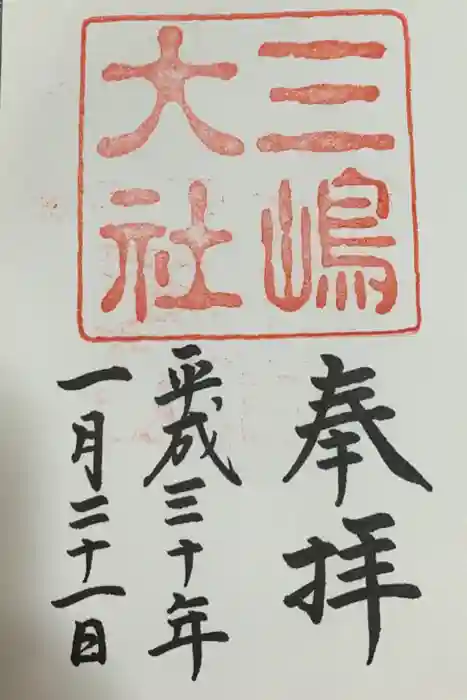 三嶋
大社
奉拝
平成三十年
一月二十一日